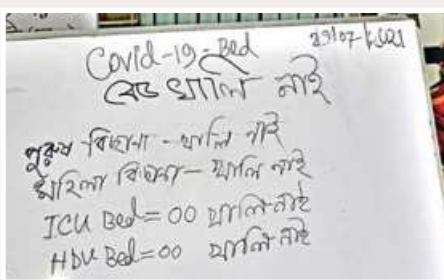 Covid-19-Bed
বেড খালি নাই
পুরুষ বিছানা - খালি নাই
মহিলা বিছানা - খালি নাই
ICU Bed= 00 খালি নাই
HDU Bed=00 খালি নাই